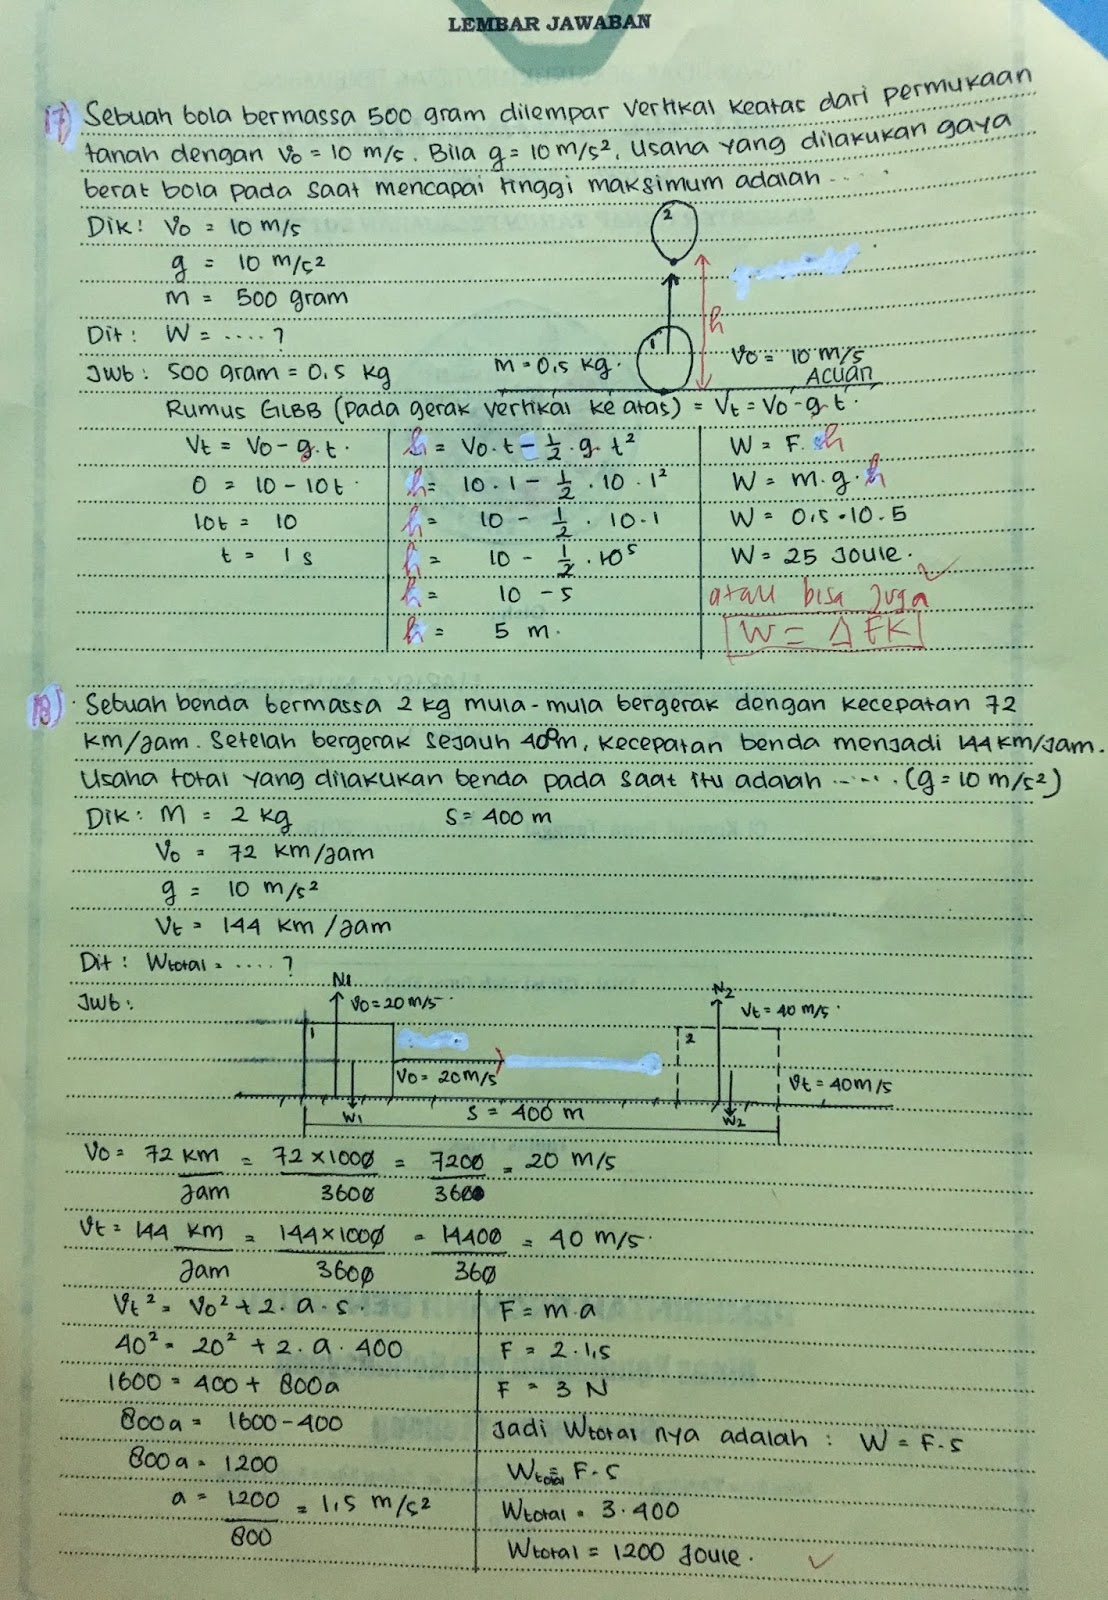 LEMBAR JAWABAN
17) Sebuah bola bermassa 500 gram dilempar vertikal keatas dari permukaan
tanah dengan V₀ = 10 m/s. Bila g = 10 m/s², Usaha yang dilakukan gaya
berat bola pada saat mencapai tinggi maksimum adalah ....
Dik: V₀ = 10 m/s
g = 10 m/s²
m = 500 gram
Dit: W = ....?
Jwb: 500 gram = 0,5 kg
2
h
1
m = 0,5 kg.
V₀ = 10 m/s
Acuan
Rumus GLBB (pada gerak vertikal ke atas) = Vt = V₀ - g.t.
Vt = V₀ - g.t.
0 = 10 - 10t.
10t = 10
t = 1 s
h = V₀.t - 1/2 . g. t²
h = 10.1 - 1/2 . 10 . 1²
h = 10 - 1/2 . 10.1
h = 10 - 1/2 . 10 5
h = 10 - 5
h = 5 m.
W = F. h
W = m.g.h
W = 0,5.10.5
W = 25 Joule.
atau bisa juga
W = Δ EK
18) Sebuah benda bermassa 2 kg mula-mula bergerak dengan kecepatan 72
km/jam. Setelah bergerak sejauh 400m, kecepatan benda menjadi 144 km/jam.
Usaha total yang dilakukan benda pada saat itu adalah ....... (g = 10 m/s²)
Dik: m = 2 kg S = 400 m
V₀ = 72 km/jam
g = 10 m/s²
Vt = 144 km/jam
Dit: Wtotal = ....?
Jwb:
N1
V₀ = 20 m/s.
1
V₀ = 20 m/s
W1
S = 400 m
N2
Vt = 40 m/s.
2
Vt = 40 m/s
W2
V₀ = 72 km/jam = 72 x 1000/3600 = 7200/360 = 20 m/s
Vt = 144 km/jam = 144 x 1000/3600 = 14400/360 = 40 m/s.
Vt² = V₀² + 2. a. s.
40² = 20² + 2. a. 400
1600 = 400 + 800a
800a = 1600 - 400
800a = 1200
a = 1200/800 = 1,5 m/s²
F = m.a
F = 2.1,5
F = 3 N
Jadi Wtotal nya adalah : W = F.s
Wtotal = F.s
Wtotal = 3.400
Wtotal = 1200 Joule.